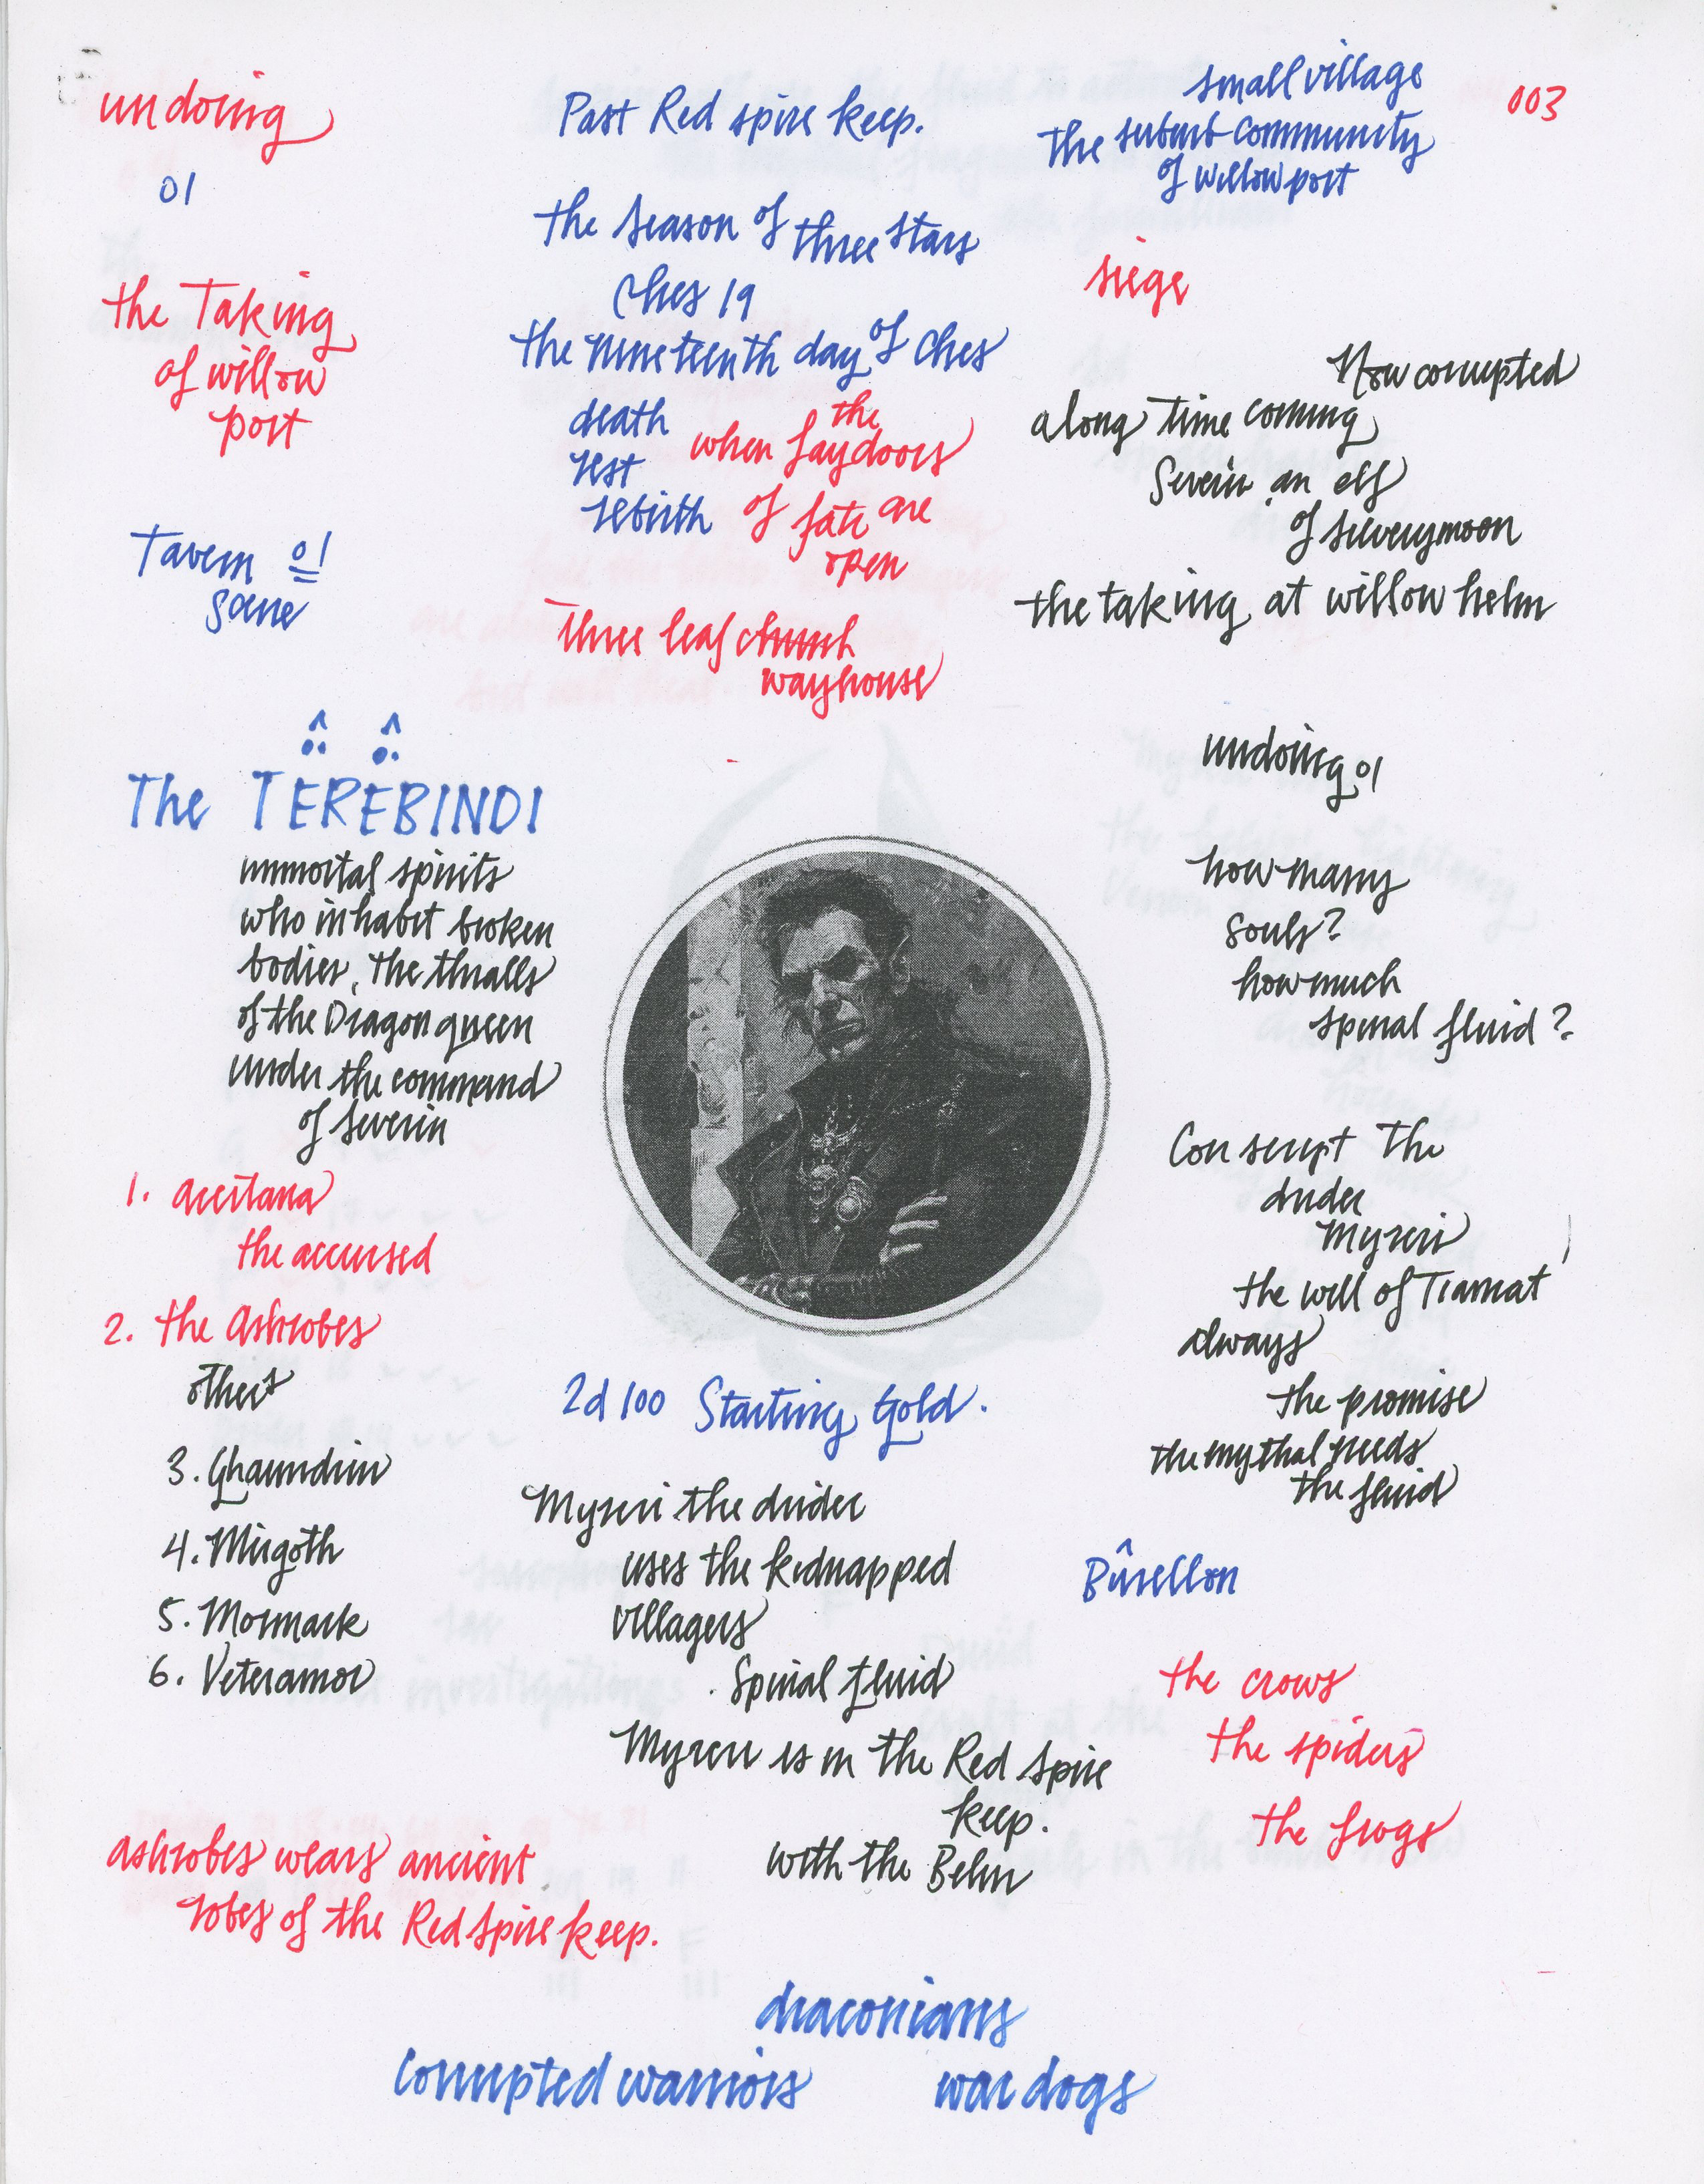 undoing
01
the Taking
of willow
port
Tavern 01
scene
Past Red spire keep.
the season of three stars
Ches 19
the nineteenth day of Ches
death
rest
rebirth
the
when fay doors
of fate are
open
three leaf church
wayhouse
small village
the suburb community
of willowport
003
siege
Now corrupted
along time coming
Severin an elf
of silverymoon
the taking at willow helm
The TËRËBINDI
immortal spirits
who inhabit broken
bodies, the thralls
of the Dragon queen
under the command
of severin
1. accitana
the accursed
2. the Ashrobes
others
3. Ghaundrin
4. Mirgoth
5. Mormark
6. Veteramor
ashrobes wears ancient
robes of the Red spire keep.
undoing 01
how many
souls?
how much
spinal fluid?
Conscript the
drider
Myzeri
the will of Tiamat
always
the promise
the mythal needs
the fluid
2d100 Starting Gold.
Myzeri the drider
uses the kidnapped
villagers
Spinal fluid
Myzeri is in the Red spire
keep.
with the Behn
Bûrellon
the crows
the spiders
the frogs
draconians
corrupted warriors
war dogs